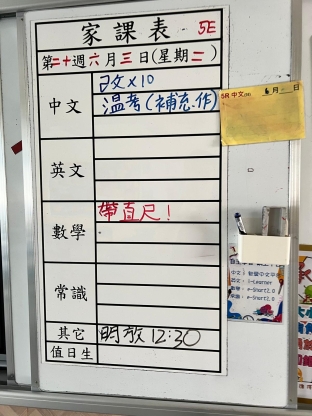 家課表 5E
第二十週六月三日(星期二)
中文
改文x10
温考(補充.作)
英文
數學
帶直尺!
常識
其它
明放12:30
值日生
5B 中文
月 日
中文: i-Learner
e-Smart2.0
e-Smart2.0